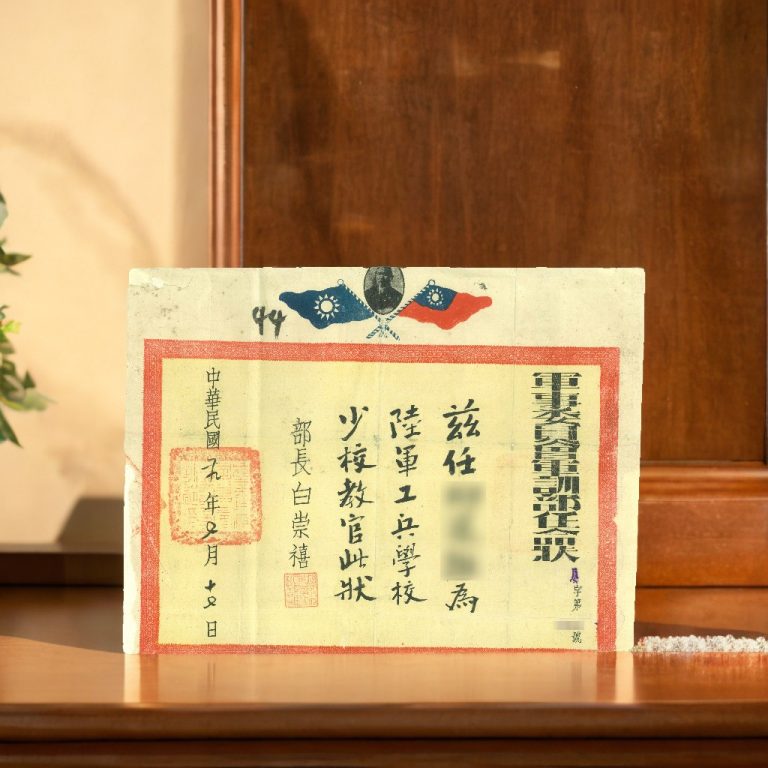 44
軍事委員會軍訓部任命狀
字第 號
茲任 為
陸軍工兵學校
少校教官此狀
部長白崇禧
中華民國廿九年七月十七日